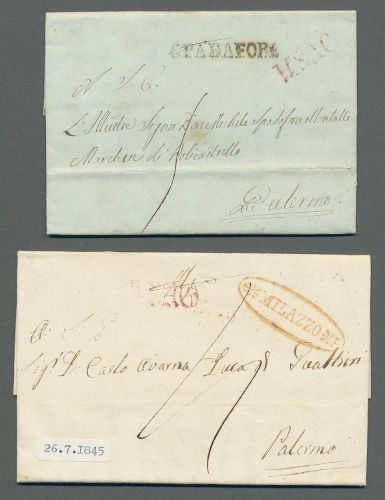 SPADAFORA
A S. E.
L'Illustre Signor Don Michele Spadafora e Montalto
Marchese di Policastrello
Palermo
MILAZZO
A. S. E.
Sigr. D. Carlo Avarna Duca di Gualtieri
26.7.1845
Palermo